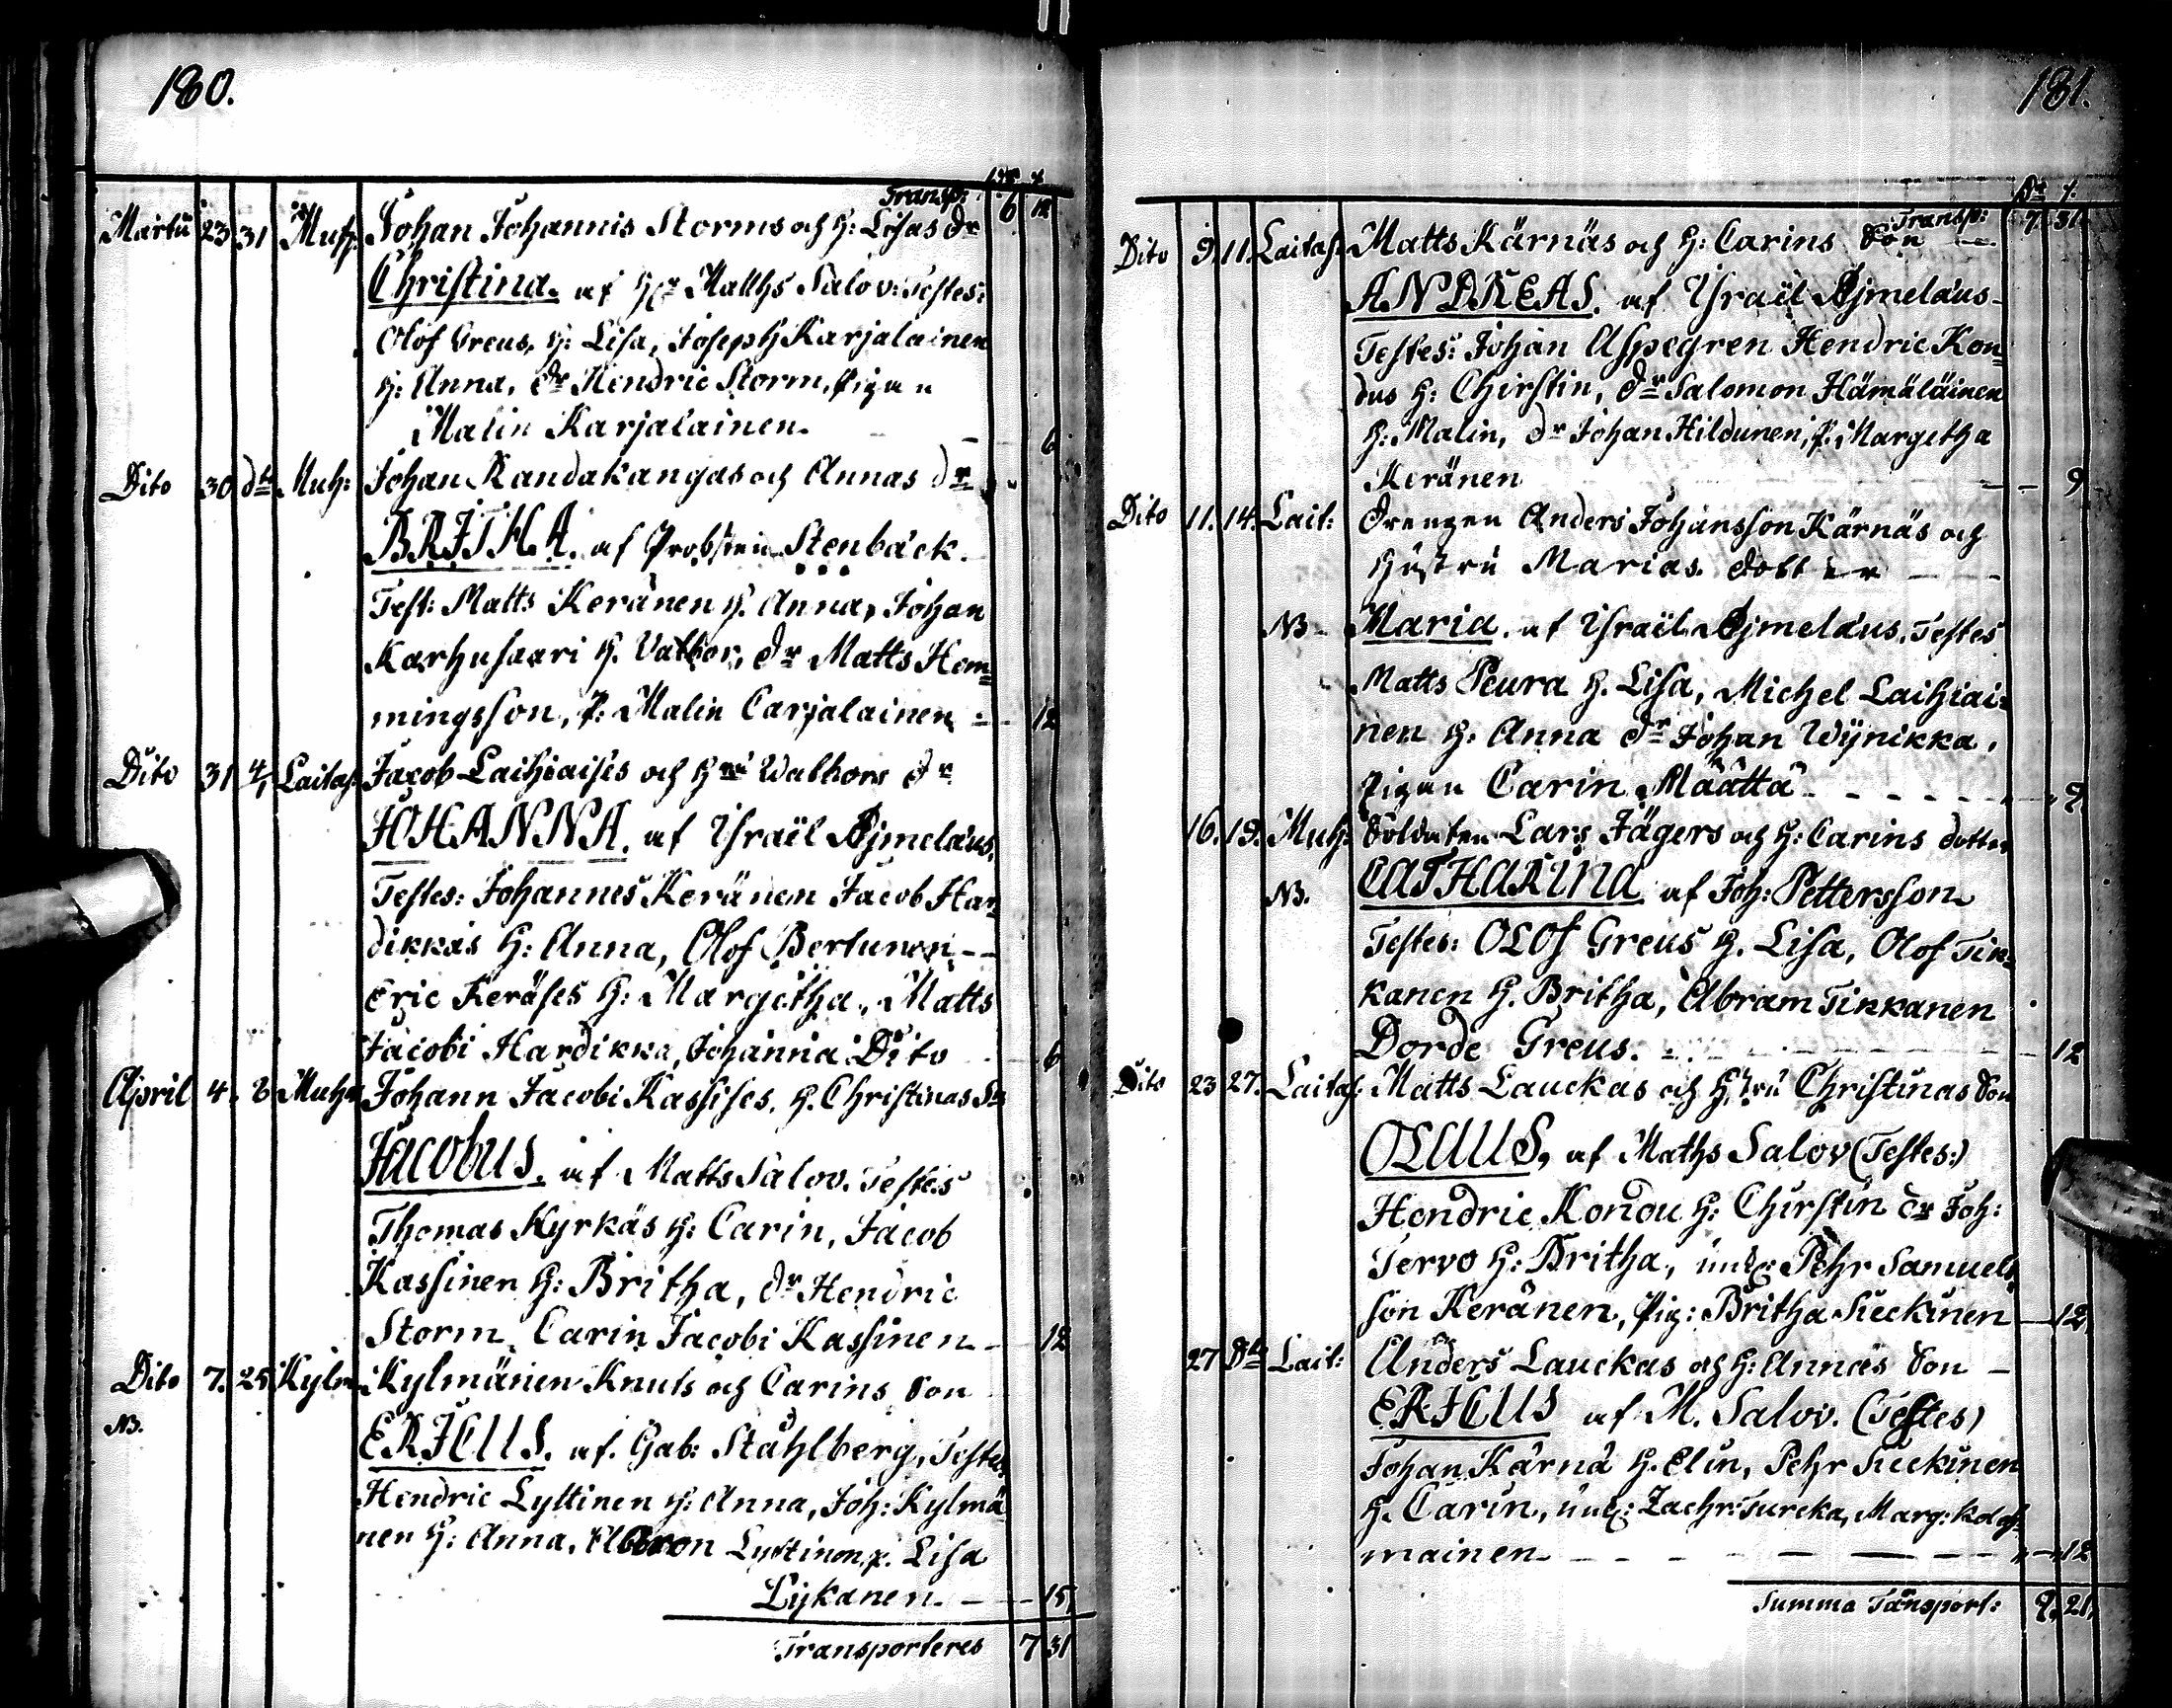 180.
Transp: 6 12
Martii 23 31 Muh: Johan Johannis Storms och h: Lisas dr
Christina. af Matths Salov: Testes:
Olof Greus, h: Lisa, Joseph Karjalainen
h: Anna, dr Hendric Storm, Pigan
Malin Karjalainen. - - 6
Dito 30 dto Muh: Johan Kandakangas och Annas dr
BRITHA. af Probsten Stenbäck.
Test: Matts Keränen h. Anna, Johan
Karhusaari h. Valbor, dr Matts Hem=
mingsson, P: Malin Carjalainen - 12
Dito 31 4 Laitas: Jacob Laihiaises och hru Walbors dr
JOHANNA. af Israël Ajmelæus.
Testes: Johannes Keränen Jacob Har=
dikkas h: Anna, Olof Bertunen --
Eric Keräses h: Margetha, Matts
Jacobi Hardikka, Johanna Dito 6
April 4. 8 Muh: Johann Jacobi Kassises, h. Christinas Sn
Jacobus. af Matts Salov. Testes
Thomas Kyrkäs h: Carin, Jacob
Kassinen h: Britha, dr Hendric
Storm, Carin Jacobi Kassinen - 12
Dito 7. 25 Kylm Kylmänen Knuts och Carins Son
NB. ERICUS. af. Gab: Ståhlberg, Testes
Hendric Lyttinen h: Anna, Joh: Kylmä
nen h: Anna, Lyttinen, p. Lisa
Lijkanen. - 15
Transporteres 7 31
181.
Transp: 7. 31
Dito 9. 11. Laitas: Matts Kärnäs och h: Carins Son
ANDREAS. af Israël Ajmelæus-
Testes: Johan Aspegren Hendric Kon=
dus h: Chirstin, dr Salomon Hämäläinen
h: Malin, dr Johan Hildunen, P. Margetha
Keränen - - 9
Dito 11. 14. Lait: Drengen Anders Johansson Kärnäs och
hustru Marias. dotter
NB- Maria. af Israël Ajmelæus. Testes
Matts Peura h. Lisa, Michel Laihiai=
nen h. Anna dr Johan Wijnikka,
pigan Carin Määttä - - - - 9
16. 19. Muh: Soldaten Lars Jägers och h: Carins dotter
NB. CATHARINA af Joh: Pettersson
Testes: OLOf Greus h. Lisa, Olof Tik=
kanen h. Britha, Abram Tikkanen
Dorde Greus. - - - 12
Dito 23 27. Laitas: Matts Lauckas och hstru Christinas Son
OLAUUS, af Maths Salov (Testes:)
Hendric Kondu h: Chirstin dr Joh:
Tervo h: Britha, Pehr Samuels
son Keränen, Pig: Britha Sieckinen - 12
27 Dto Lait: Anders Lauckas och h: Annas Son -
ERICUS af M. Salov. (Testes)
Johan Kärnä h. Elin, Pehr Sieckinen
h. Carin, Zachr: Turcka, Marg:
mainen - - - - 12
Summa Tansport: 9. 21.